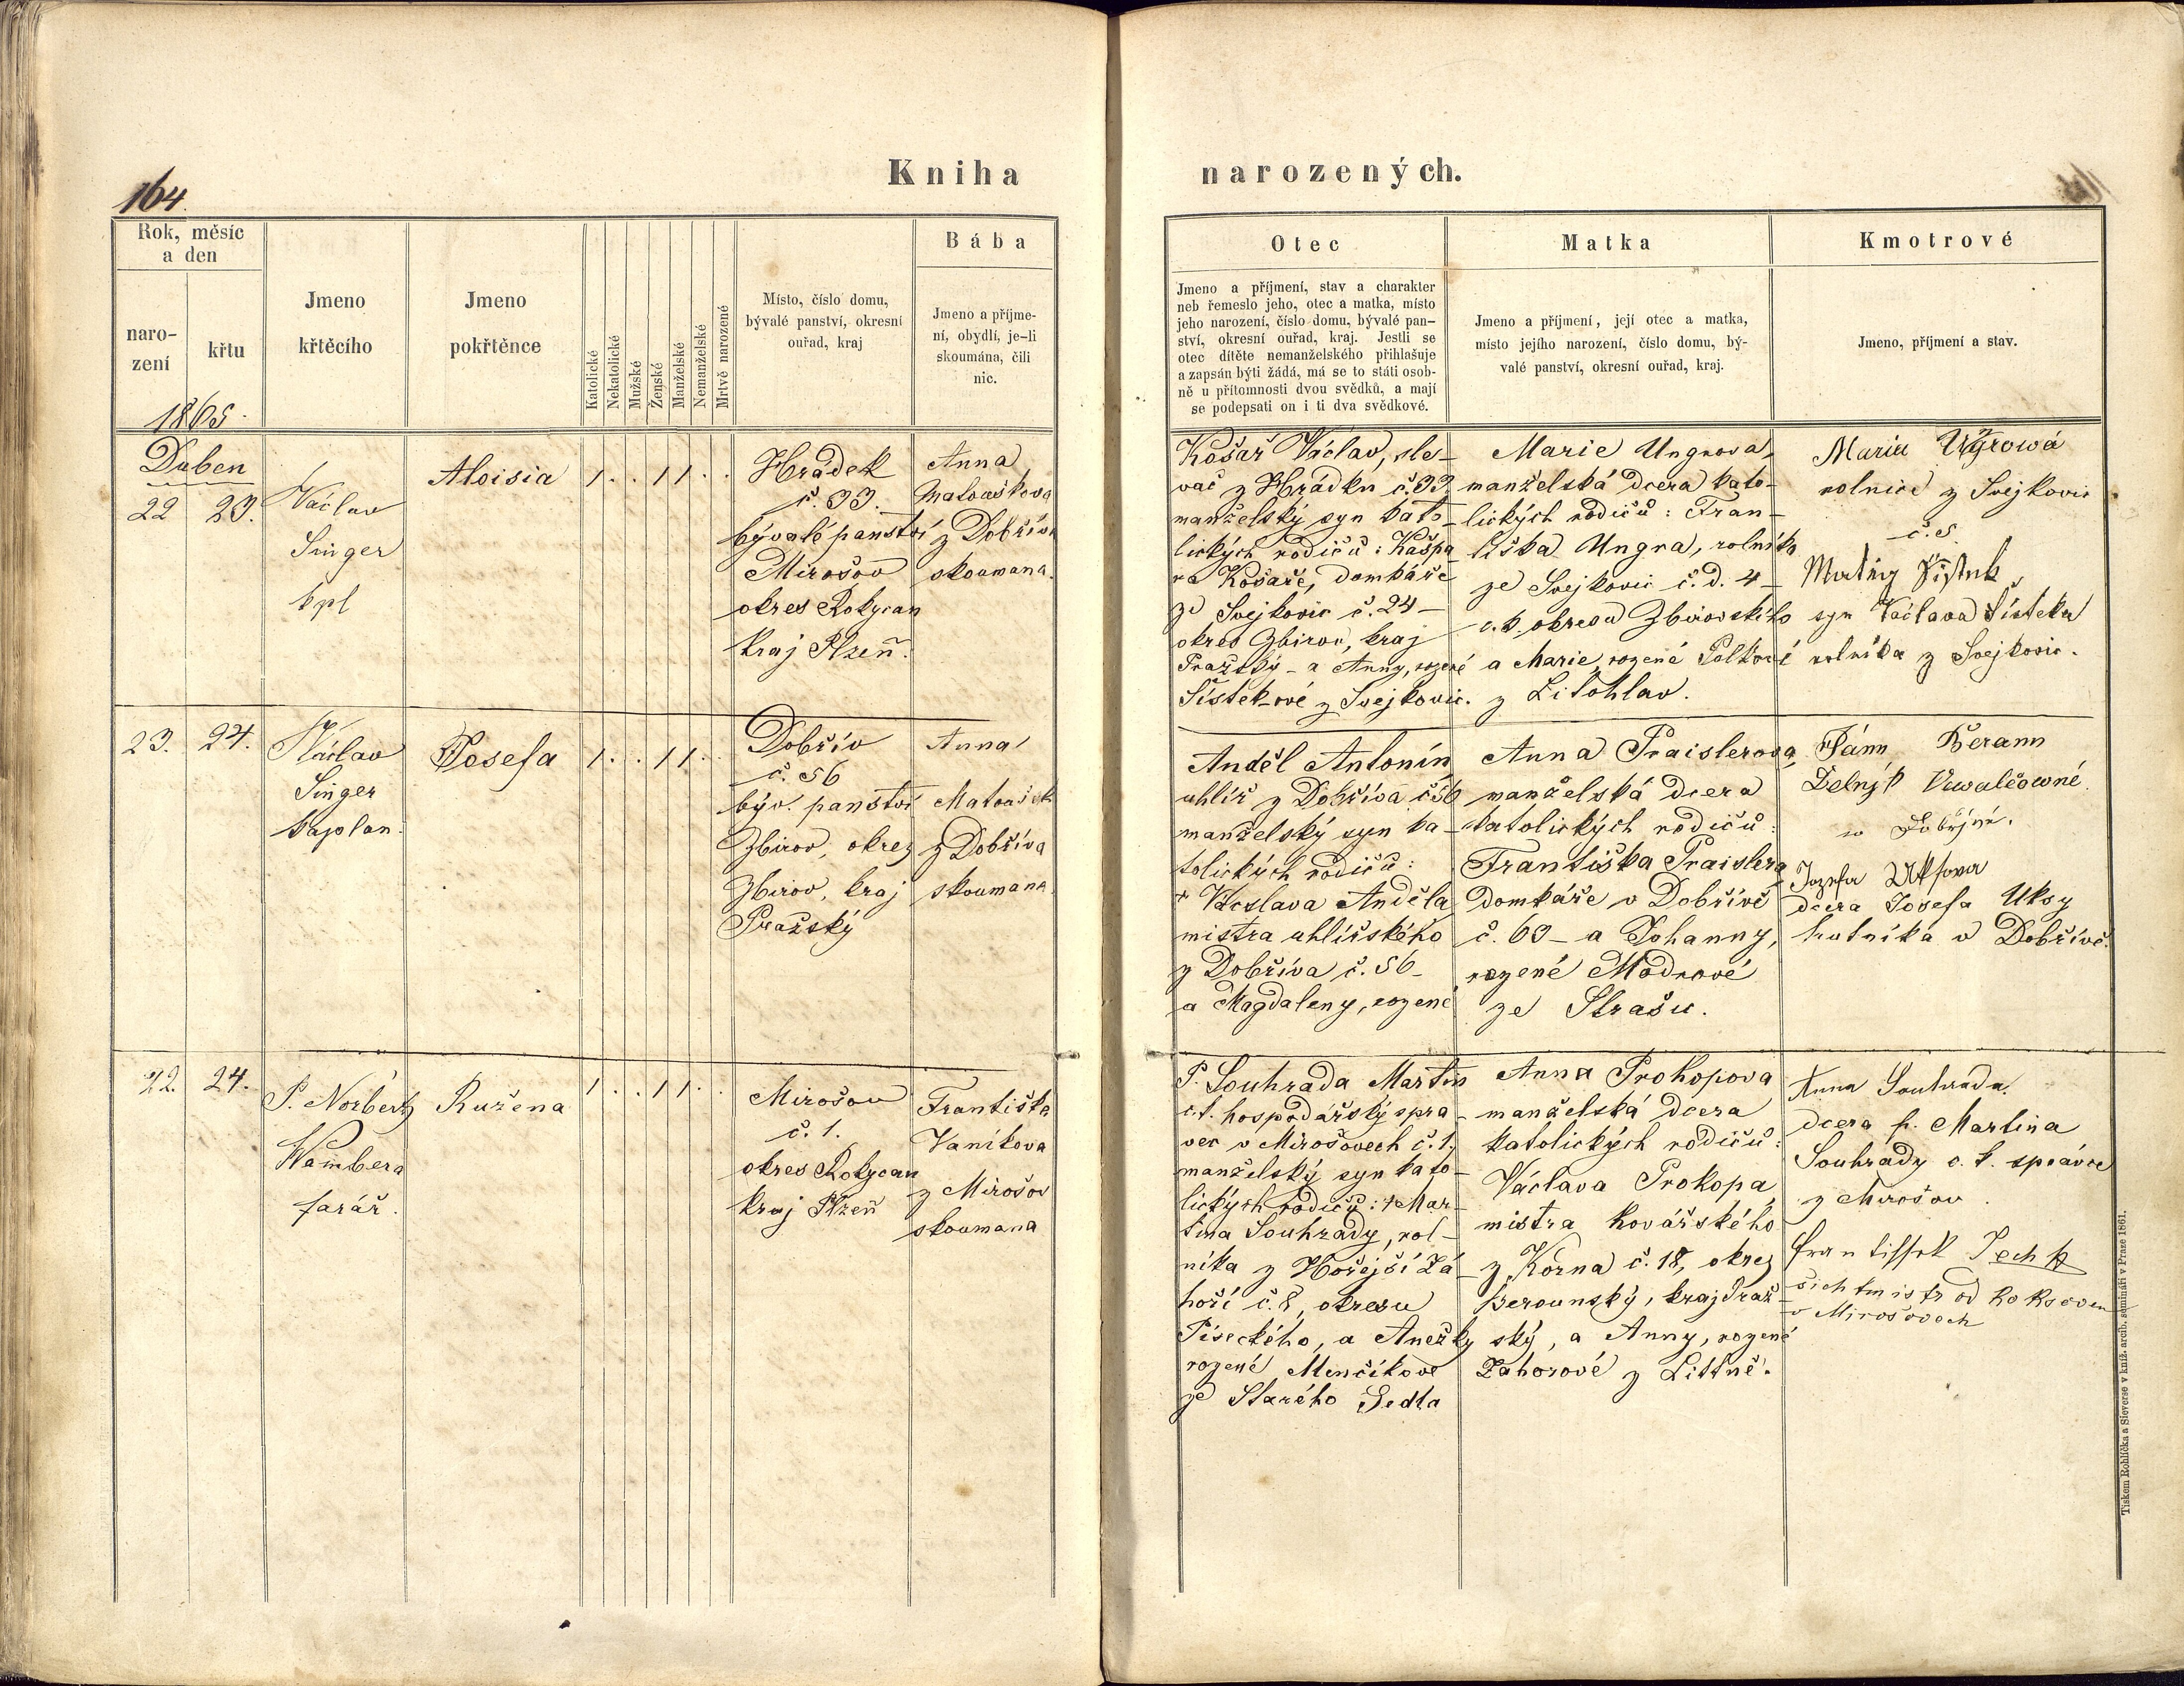 164.
Kniha narozených.
Rok, měsíc
a den
naro-
zení
křtu
Jmeno
křtěcího
Jmeno
pokřtěnce
Katolické
Nekatolické
Mužské
Ženské
Manželské
Nemanželské
Mrtvě narozené
Místo, číslo domu,
bývalé panství, okresní
ouřad, kraj
Bába
Jmeno a příjme-
ní, obydlí, je-li
skoumána, čili
nic.
Otec
Jmeno a příjmení, stav a charakter
neb řemeslo jeho, otec a matka, místo
jeho narození, číslo domu, bývalé pan-
ství, okresní ouřad, kraj. Jestli se
otec dítěte nemanželského přihlašuje
a zapsán býti žádá, má se to státi osob-
ně u přítomnosti dvou svědků, a mají
se podepsati on i ti dva svědkové.
Matka
Jmeno a příjmení, její otec a matka,
místo jejího narození, číslo domu, bý-
valé panství, okresní ouřad, kraj.
Kmotrové
Jmeno, příjmení a stav.
1865.
Duben
22 23.
Václav
Singer
kpl
Aloisia
1 . . 1 1 . .
Hrádek
č. 33.
bývalé panství
Mirošov
okres Rokycan
Kraj Plzeň.
Anna
Matouškova
z Dobřívi
skoumana.
Košař Václav, sle-
vač z Hrádku č. 33
manželský syn kato-
lických rodičů: Kašpa
ra Košaře, domkáře
ze Svejkovic č. 24 -
okres Zbirov, kraj
Pražský - a Anny, rozené
Šístek-ové z Svejkovic.
Marie Ungrova,
manželská dcera kato-
lických rodičů: Fran-
tiška Ungra, rolníka
ze Svejkovic č. d. 4 -
c. k. okresu Zbirovského
a Marie, rozené Palkové
z Litohlav.
Maria
rolnice z Svejkovic
č. 5.
syn Václava Šísteka
rolníka z Svejkovic.
23. 24.
Václav
Singer
kaplan.
Josefa
1 . . 1 1 . .
Dobřív
č. 56
býv. panství
Zbirov, okres
Zbirov, kraj
Pražský
Anna
Matoušek
z Dobříva
skoumana
Anděl Antonín
uhlíř z Dobříva č. 56
manželský syn ka-
tolických rodičů:
Václava Anděla
mistra uhlířského
z Dobříva č. 56 -
a Magdaleny, rozené
Anna Praislerova,
manželská dcera
katolických rodičů:
Františka Praislera
domkáře v Dobřívě
č. 63 - a Johanny,
rozené Modrové
ze Strašic.
Beran
Jozefa Uksova
dcera Josefa Uksy
hutníka v Dobřívě.
22. 24.
P. Norbert
Wambera
farář.
Ružena
1 . . 1 1 . .
Mirošov
č. 1.
okres Rokycan
kraj Plzeň
Františka
Vaníkova
z Mirošov
skoumana
P. Souhrada Martin
c. k. hospodářský spra-
vec v Mirošovech č. 1.
manželský syn kato-
lických rodičů: † Mar-
tina Souhrady, rol-
níka z Hořejší Zá-
hoří č. 8, okresu
Píseckého, a Anežky
rozené Menčíkové
ze Starého Sedla
Anna Prokopova
manželská dcera
katolických rodičů:
Václava Prokopa,
mistra kovářského
z Korna č. 18, okres
Berounský, kraj Praž-
ský, a Anny, rozené
Zahorové z Littně.
Anna Souhrada.
dcera p. Martina
Souhrady c. k. správce
z Mirošov.
šichtmistr od
v Mirošovech
Tiskem Rohlíčka a Sieverse v kníž. arcib. semináři v Praze 1861.